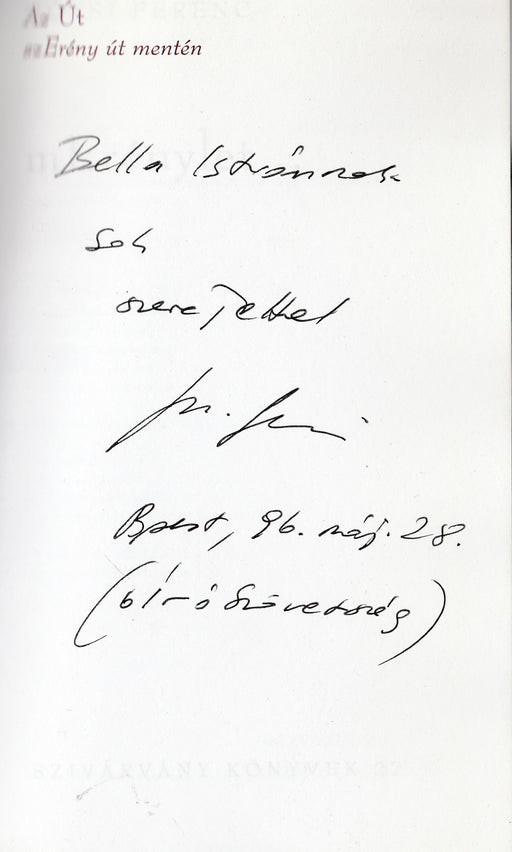 Az Út
az Erény út mentén
Bella Istvánnak
Sok
szeretettel
Bpest, 96. máj. 28.
SZIVÁRVÁNY KÖNYVEK 27